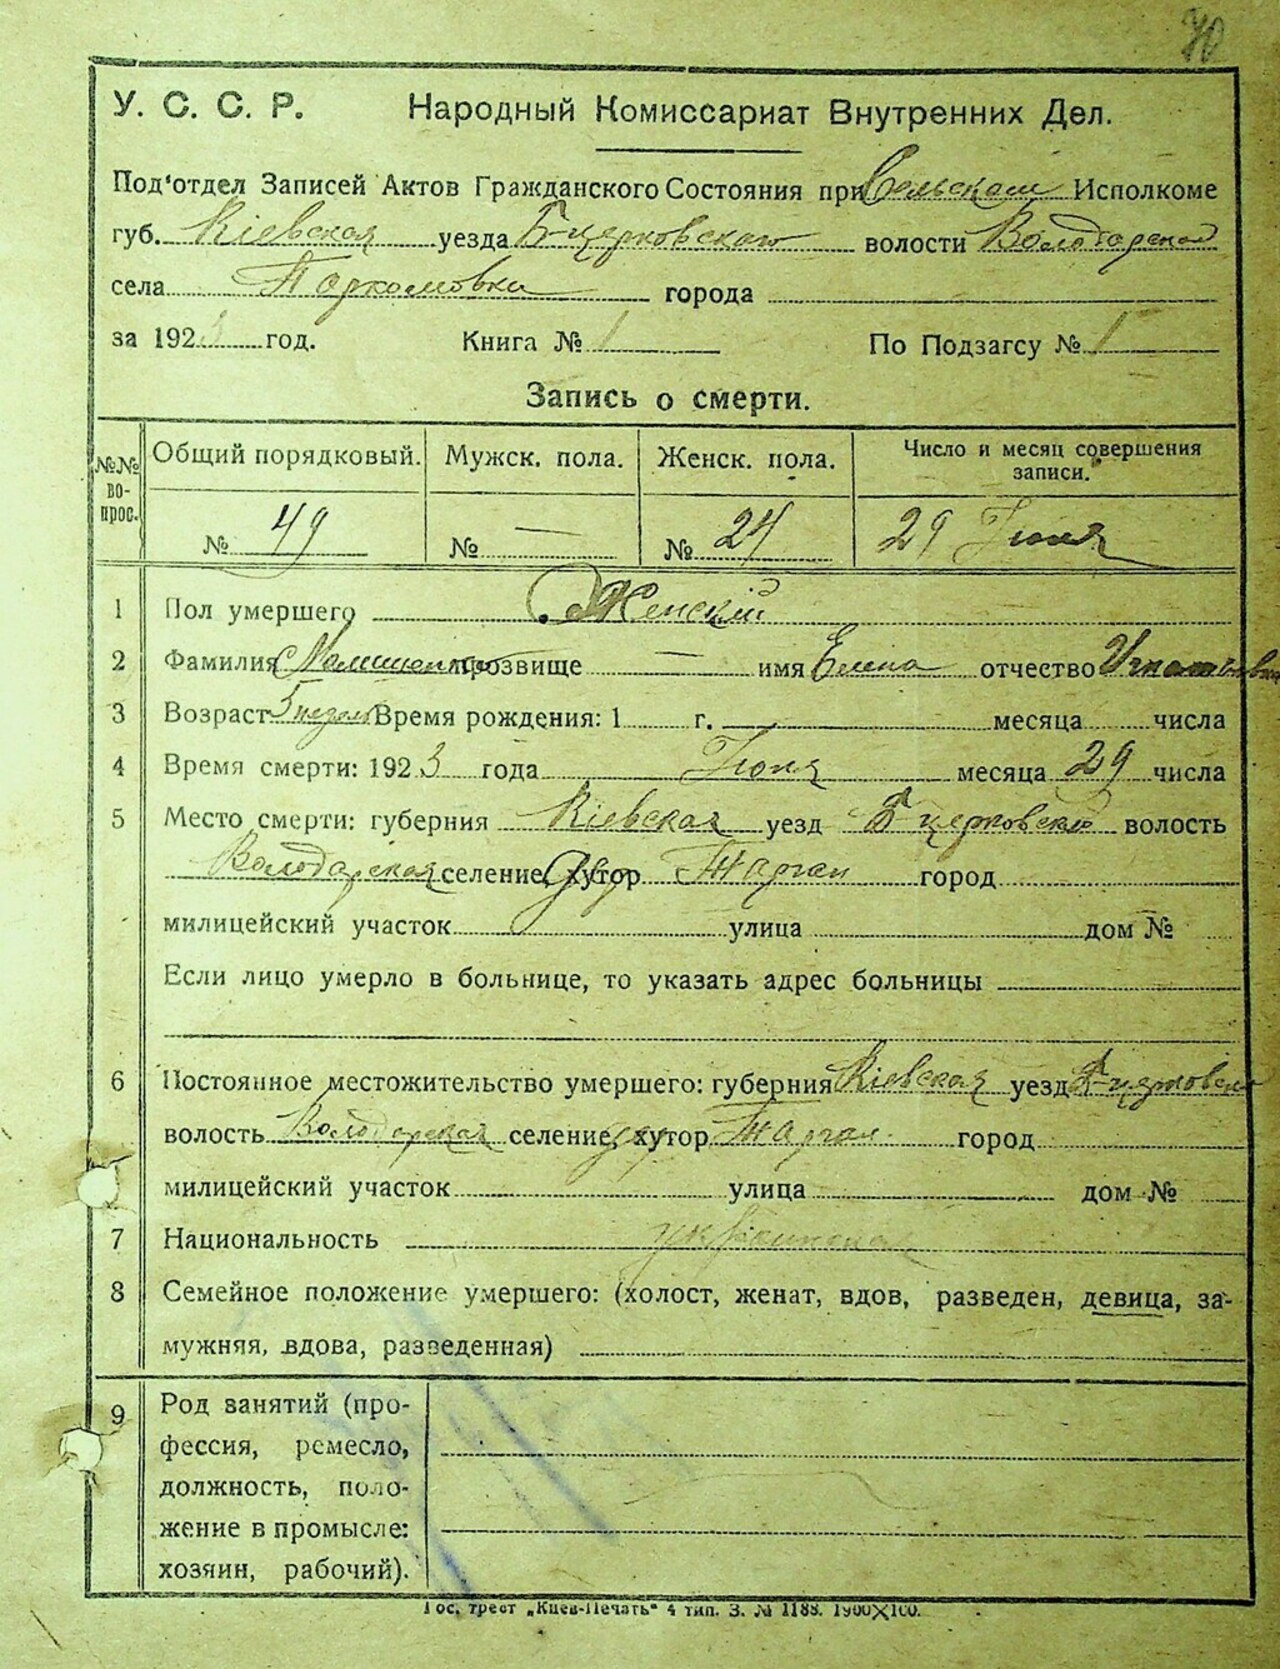 70
У. С. С. Р. Народный Комиссариат Внутренних Дел.
Под'отдел Записей Актов Гражданского Состояния при Сельском Исполкоме
губ. Кіевская уезда Б-церковскаго волости Володарской
села Пархомовки города
за 1923 год. Книга № 1 По Подзагсу № 1
Запись о смерти.
№№ во- прос. Общий порядковый. Мужск. пола. Женск. пола. Число и месяц совершения записи.
№ 49 № — № 24 29 Іюня
1 Пол умершего Женскій
2 Фамилия прозвище — имя Елена отчество Игнатьевна
3 Возраст 5 недель Время рождения: 1 г. месяца числа
4 Время смерти: 1923 года Іюня месяца 29 числа
5 Место смерти: губерния Кіевская уезд Б-церковский волость
Володарская селение, хутор город
милицейский участок улица дом №
Если лицо умерло в больнице, то указать адрес больницы
6 Постоянное местожительство умершего: губерния Кіевская уезд Б-церковский
волость Володарская селение, хутор город
милицейский участок улица дом №
7 Национальность украинская
8 Семейное положение умершего: (холост, женат, вдов, разведен, девица, за-
мужняя, вдова, разведенная)
9 Род занятий (про-
фессия, ремесло,
должность, поло-
жение в промысле:
хозяин, рабочий).
Гос. трест „Киев-Печать" 4 тип. З. № 1188. 1900×100.